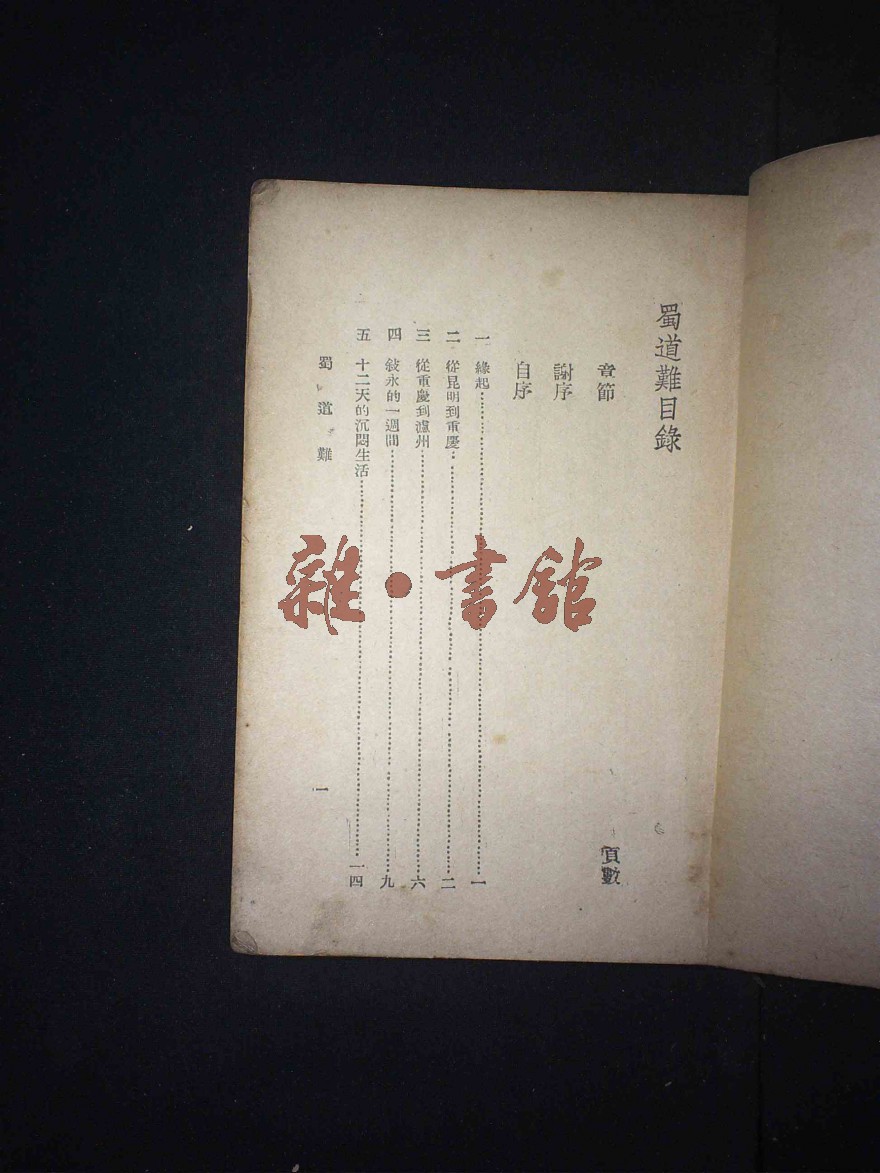 蜀道難目錄
章節 頁數
謝序
自序
一 緣起 一
二 從昆明到重慶 二
三 從重慶到瀘州 六
四 敍永的一週間 九
五 十二天的沉悶生活 一四
蜀道難 一
雜·書館